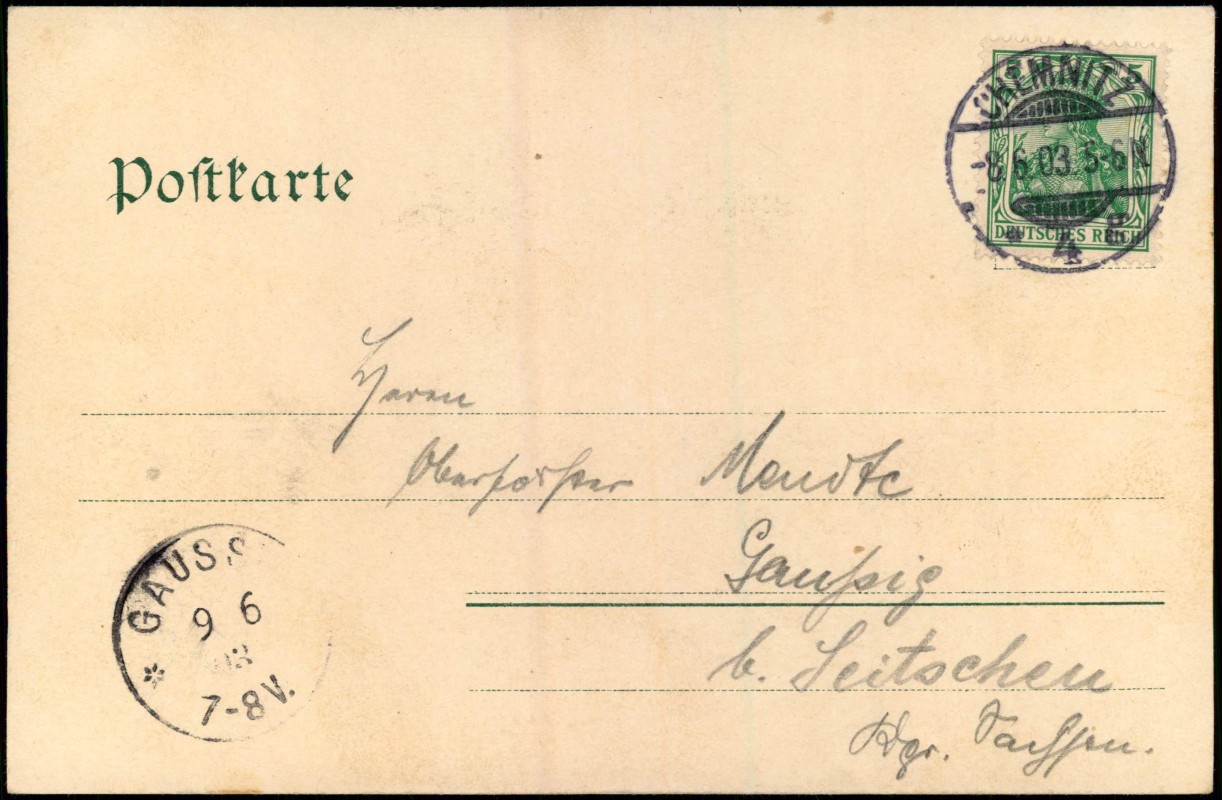 Postkarte
5
CHEMNITZ
-8.6.03. 5-6 N.
DEUTSCHES REICH
4 g
Herrn
Oberförster Mendte
Gaußig
b. Seitschen
Kgr. Sachsen.
GAUSS
9 6
03
7-8 V.